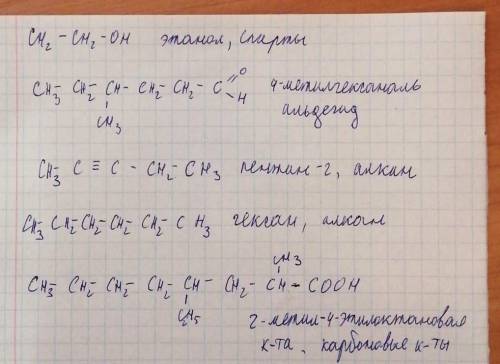 CH2 - CH2 - OH этанол, спирты
CH3 - CH2 - CH - CH2 - CH2 - C =O 4-метилгексаналь
CH3 H альдегид
CH3 - C ≡ C - CH2 - CH3 пентин-2, алкин
CH3 - CH2 - CH2 - CH2 - CH2 - CH3 гексан, алкан
CH3
CH3 - CH2 - CH2 - CH2 - CH - CH2 - CH - COOH
C2H5 2-метил-4-этилоктановая
к-та, карбоновые к-ты